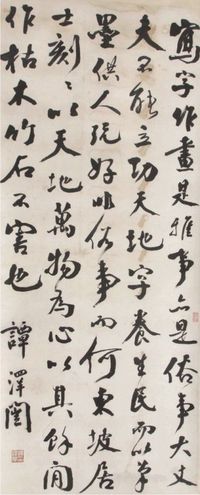 寫字作畫是雅事亦是俗事大丈
夫不能立功天地字養生民而以筆
墨供人玩好非俗事而何東坡居
士刻〻以天地萬物為心以其餘閒
作枯木竹石不害也 譚澤闓